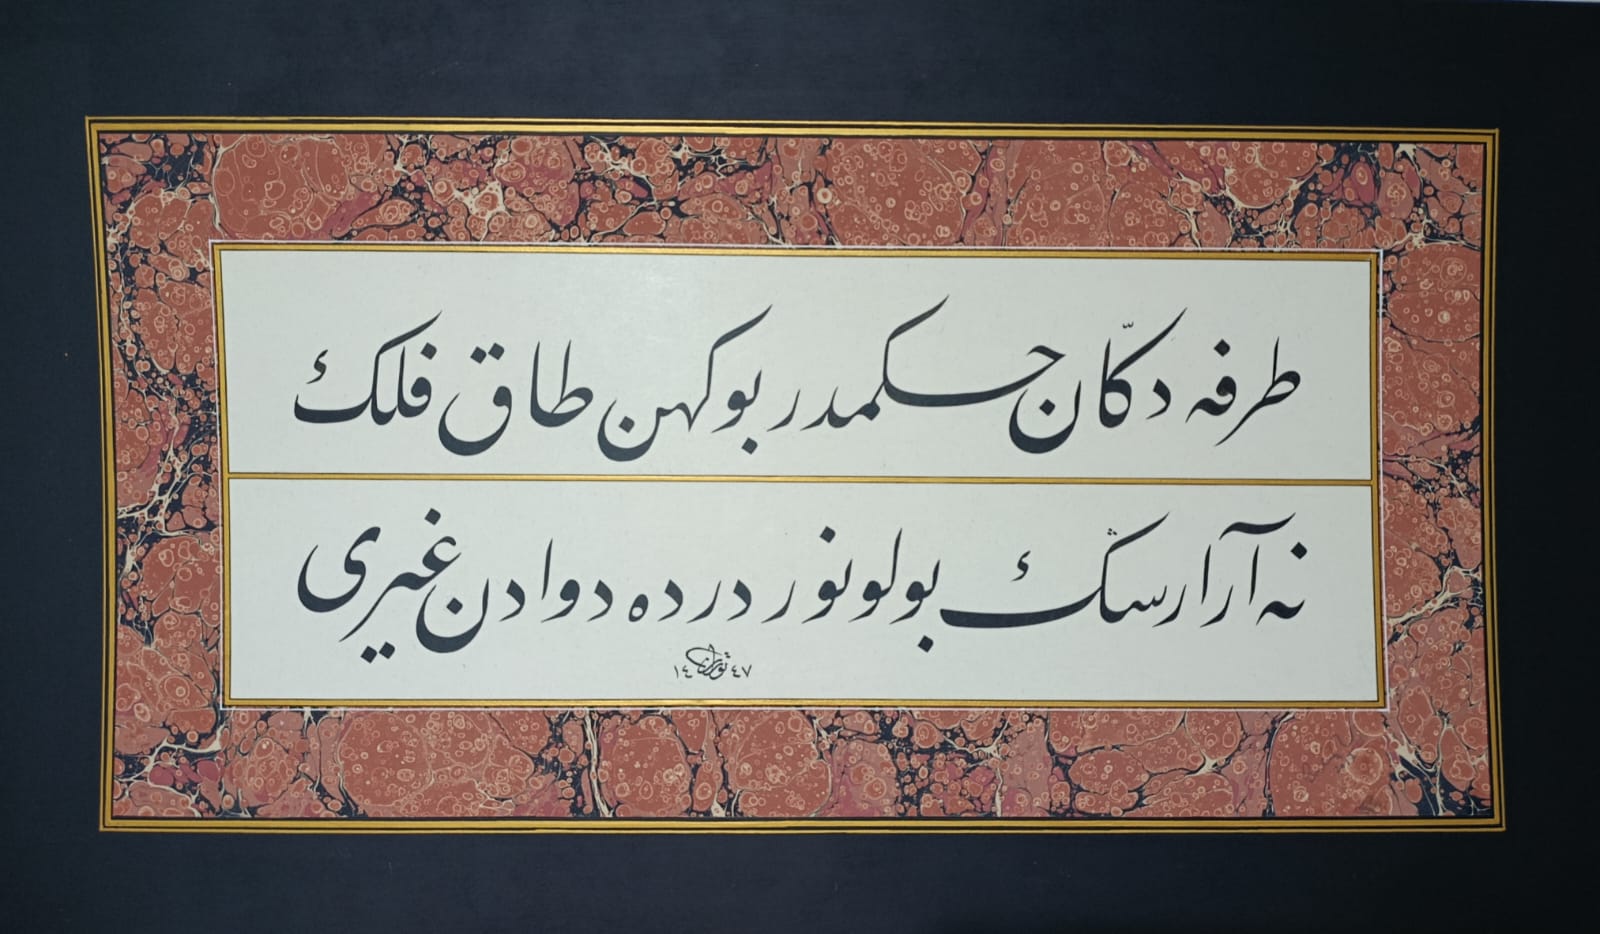 طرفه دكّان حكمدر بو كهن طاق فلك
نه آرارسڭ بولونور درده دوادن غيرى
١٤٤٧